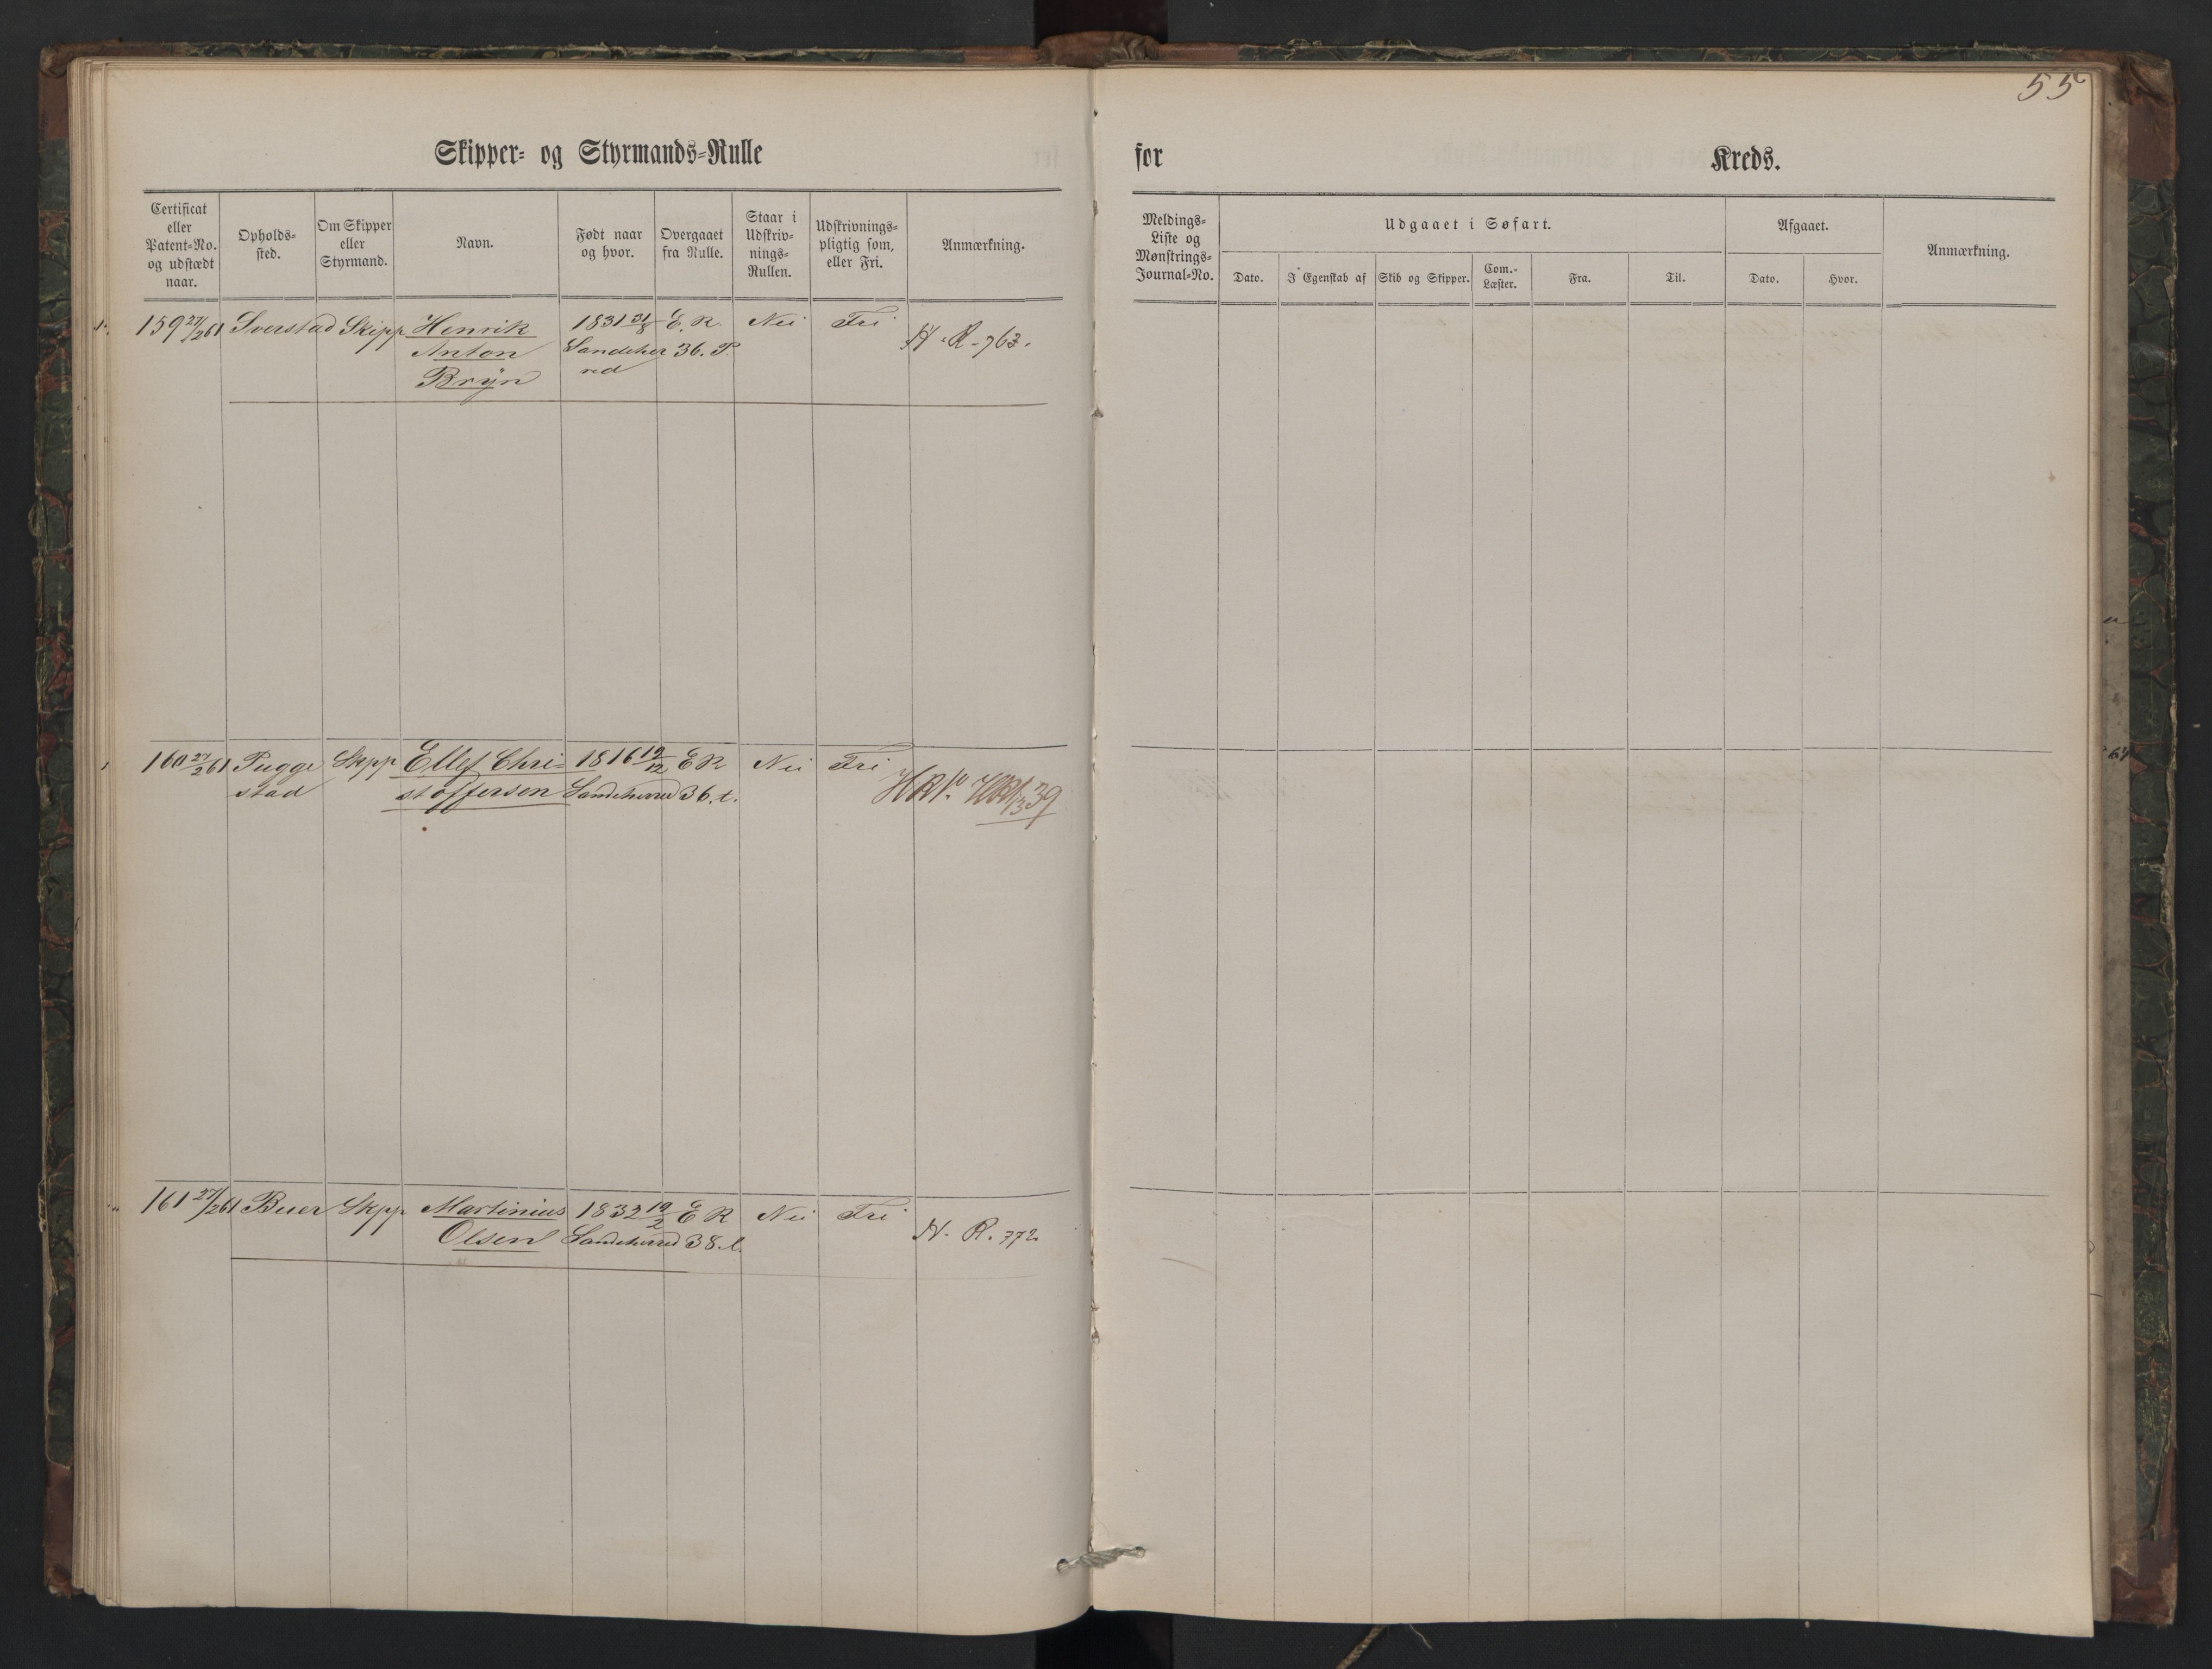 55
Skipper- og Styrmands-Rulle
for Kreds.
Certificat eller Patent-No. og udstædt naar.
Opholds-sted.
Om Skipper eller Styrmand.
Navn.
Født naar og hvor.
Overgaaet fra Rulle.
Staar i Udskriv-nings-Rullen.
Udskrivnings-pligtig som, eller Fri.
Anmærkning.
Meldings-Liste og Mønstrings-Journal-No.
Udgaaet i Søfart.
Dato.
I Egenskab af
Skib og Skipper.
Com.-Læster.
Fra.
Til.
Afgaaet.
Dato.
Hvor.
Anmærkning.
159 27/2 61 Sverstad Skipp Henrik 1831 31/8 E. R. Nei Fri
Anton Sandeher 36. P. H. R. 763.
Brÿn red
160 27/2 61 Pugge Skpp Ellef Chri- 1816 19/12 E R Nei Fri
stad stoffersen Sandeherred 36. t. 39
161 27/2 61 Buer Skpp Martinius 1832 19/2 E R Nei Fri
Olsen Sandeherred 38. l. H. R. 772